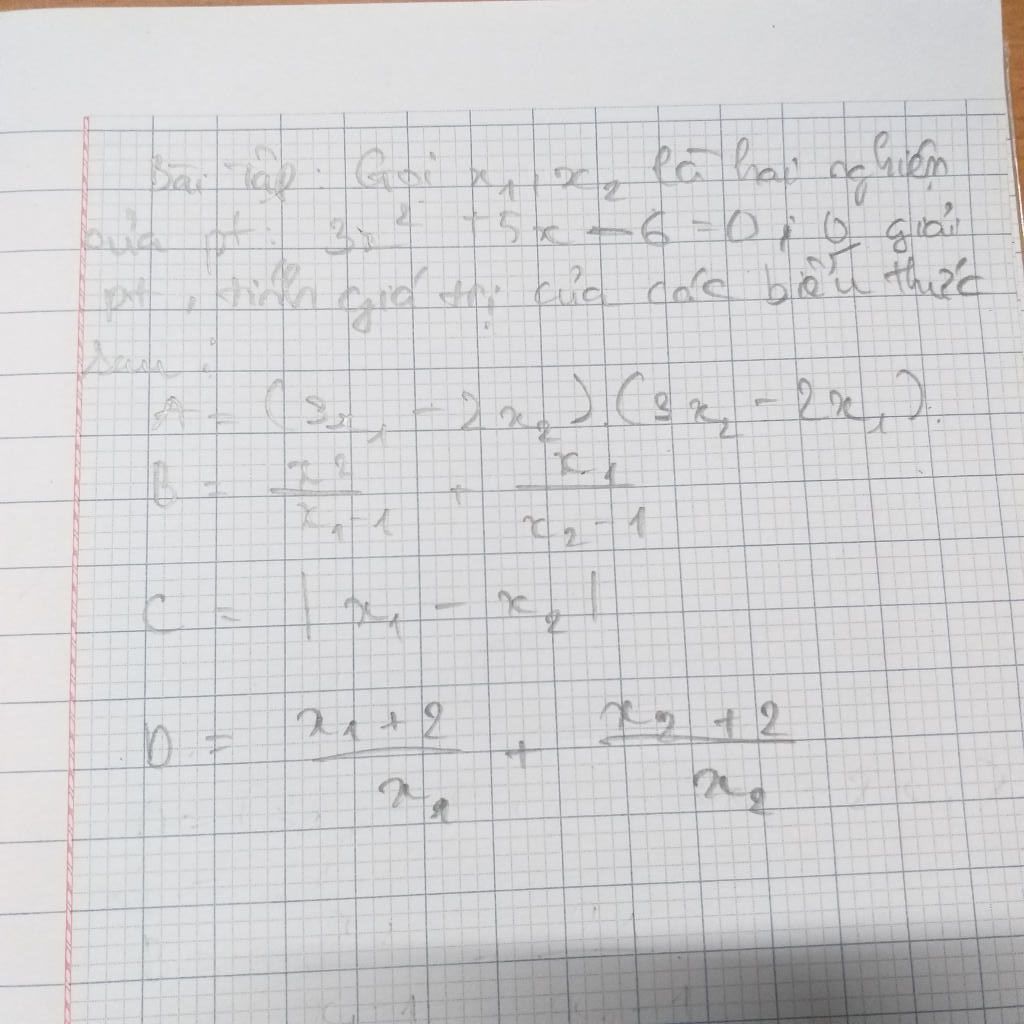 Bài tập: Gọi x₁, x₂ là hai nghiệm
của pt: 3x² + 5x - 6 = 0; 0 giải
pt, tính giá trị của các biểu thức
sau:
A = (3x₁ - 2x₂).(3x₂ - 2x₁).
B = x₂/(x₁ - 1) + x₁/(x₂ - 1)
C = |x₁ - x₂|
D = (x₁ + 2)/x₁ + (x₂ + 2)/x₂